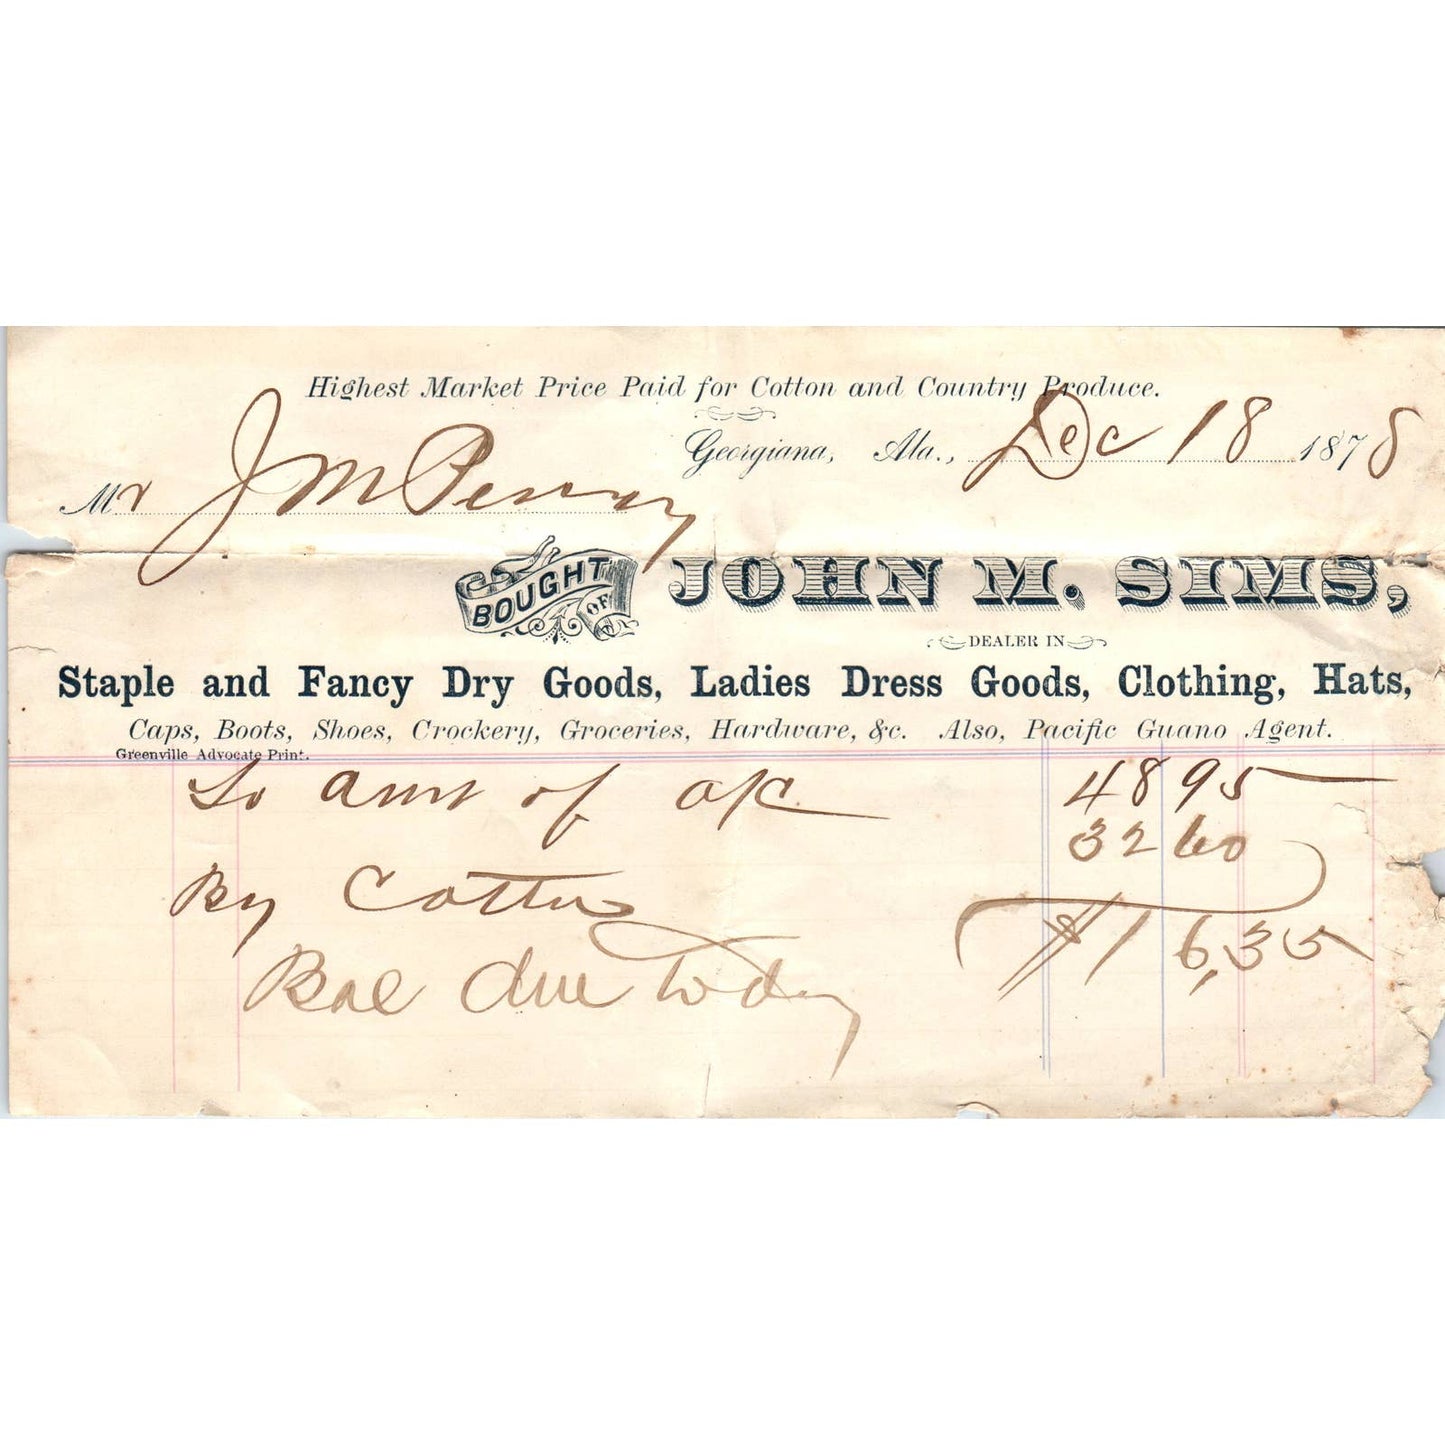 Highest Market Price Paid for Cotton and Country Produce.
Georgiana, Ala., Dec 18 1878
Mr J M Perray
BOUGHT OF JOHN M. SIMS,
DEALER IN
Staple and Fancy Dry Goods, Ladies Dress Goods, Clothing, Hats,
Caps, Boots, Shoes, Crockery, Groceries, Hardware, &c. Also, Pacific Guano Agent.
Greenville Advocate Print.
To amt of a/c 48 95
32 60
By Cotton
Bal due to day $16,35